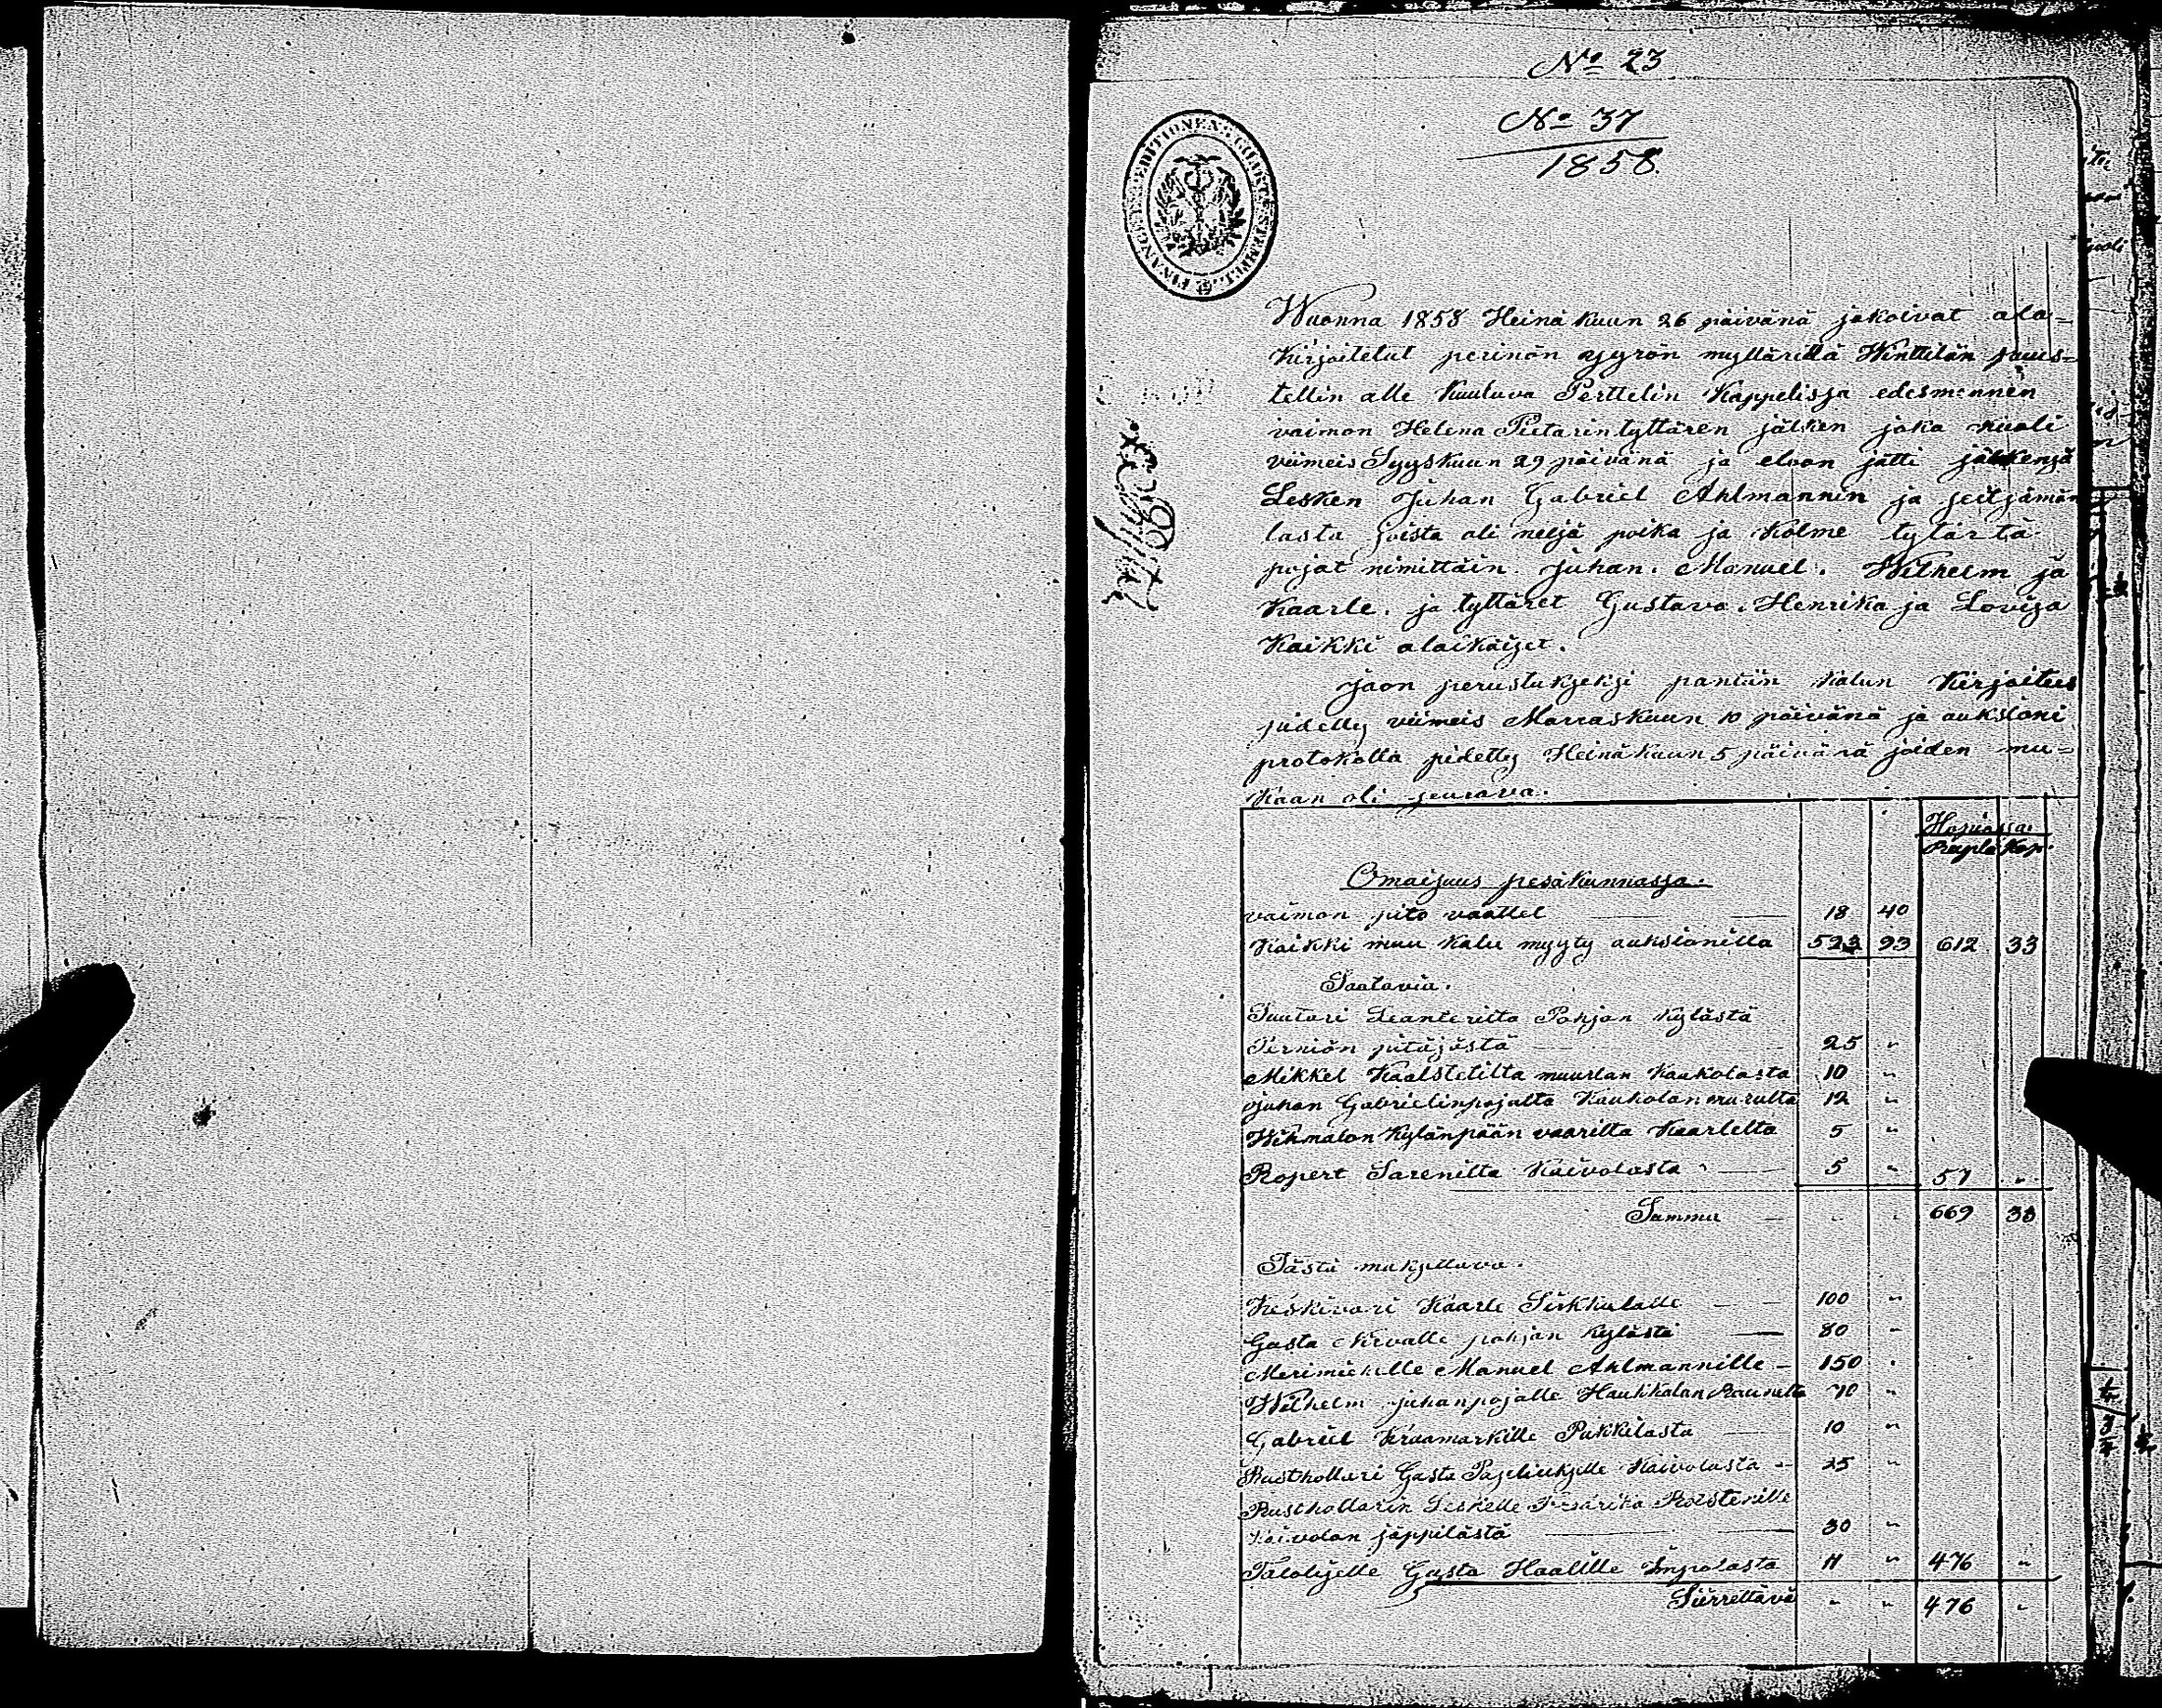 No 23
No 37
1858.
FINANCE EXPEDITIONENS STEMPEL
Wuonna 1858 Heinä kuun 26 päivänä jakoivat ala-
kirjoitetut perinön myllärillä Winttilän puus-
tellin alle kuuluva Perttelin Kappelissa edesmennen
vaimon Helena Pietarintyttären jälken joka kuoli
viimeis Syyskuun 29 päivänä ja eloon jätti jälkensä
Lesken Juhan Gabriel Ahlmannin ja seitsämän
lasta joista oli neljä poika ja kolme tytärtä
pojat nimittäin. Juhan. Manuel. Wilhelm ja
Kaarle. ja tyttäret Gustava. Henrika ja Lovisa
Kaikki alaikäiset.
Jaon perustukseksi pantiin kalun kirjoitus
pidetty viimeis Marraskuun 10 päivänä ja auksioni
protokolla pidetty Heinäkuun 5 päivänä joiden mu-
kaan oli seurava.
Hopiassa.
Rupla Kop.
Omaisuus pesäkunnassa.
vaimon pito vaattet 18 40
Kaikki muu kalu myyty auksionilla 523 93 612 33
Saatavia.
Suutari Leanterilta Pohjan kylästä
Perniön pitäjästä 25 "
Mikkel Kaalstetilta muurlan Kaukolasta 10 "
Juhan Gabrielinpojalta Kaukolan 12 "
Wihmalon Kylänpään vaarilta Kaarlelta 5 "
Ropert Sarenilta Kaivolasta 5 " 57 "
Summa " " 669 33
Tästä maksettava.
Keskivari Kaarle Sirkkulalle 100 "
Gusta pohjan kylästä 80 "
Merimiehelle Manuel Ahlmannille 150 "
Wilhelm juhanpojalle Haukkalan 70 "
Gabriel Pukkilasta 10 "
Rusthollari Gusta Kaivolasta 25 "
Rusthollarin Leskelle
Kaivolan jäppilästä 30 "
Talolliselle Gusta Haalille Impolasta 11 " 476 "
Siirrettävä " " 476 "